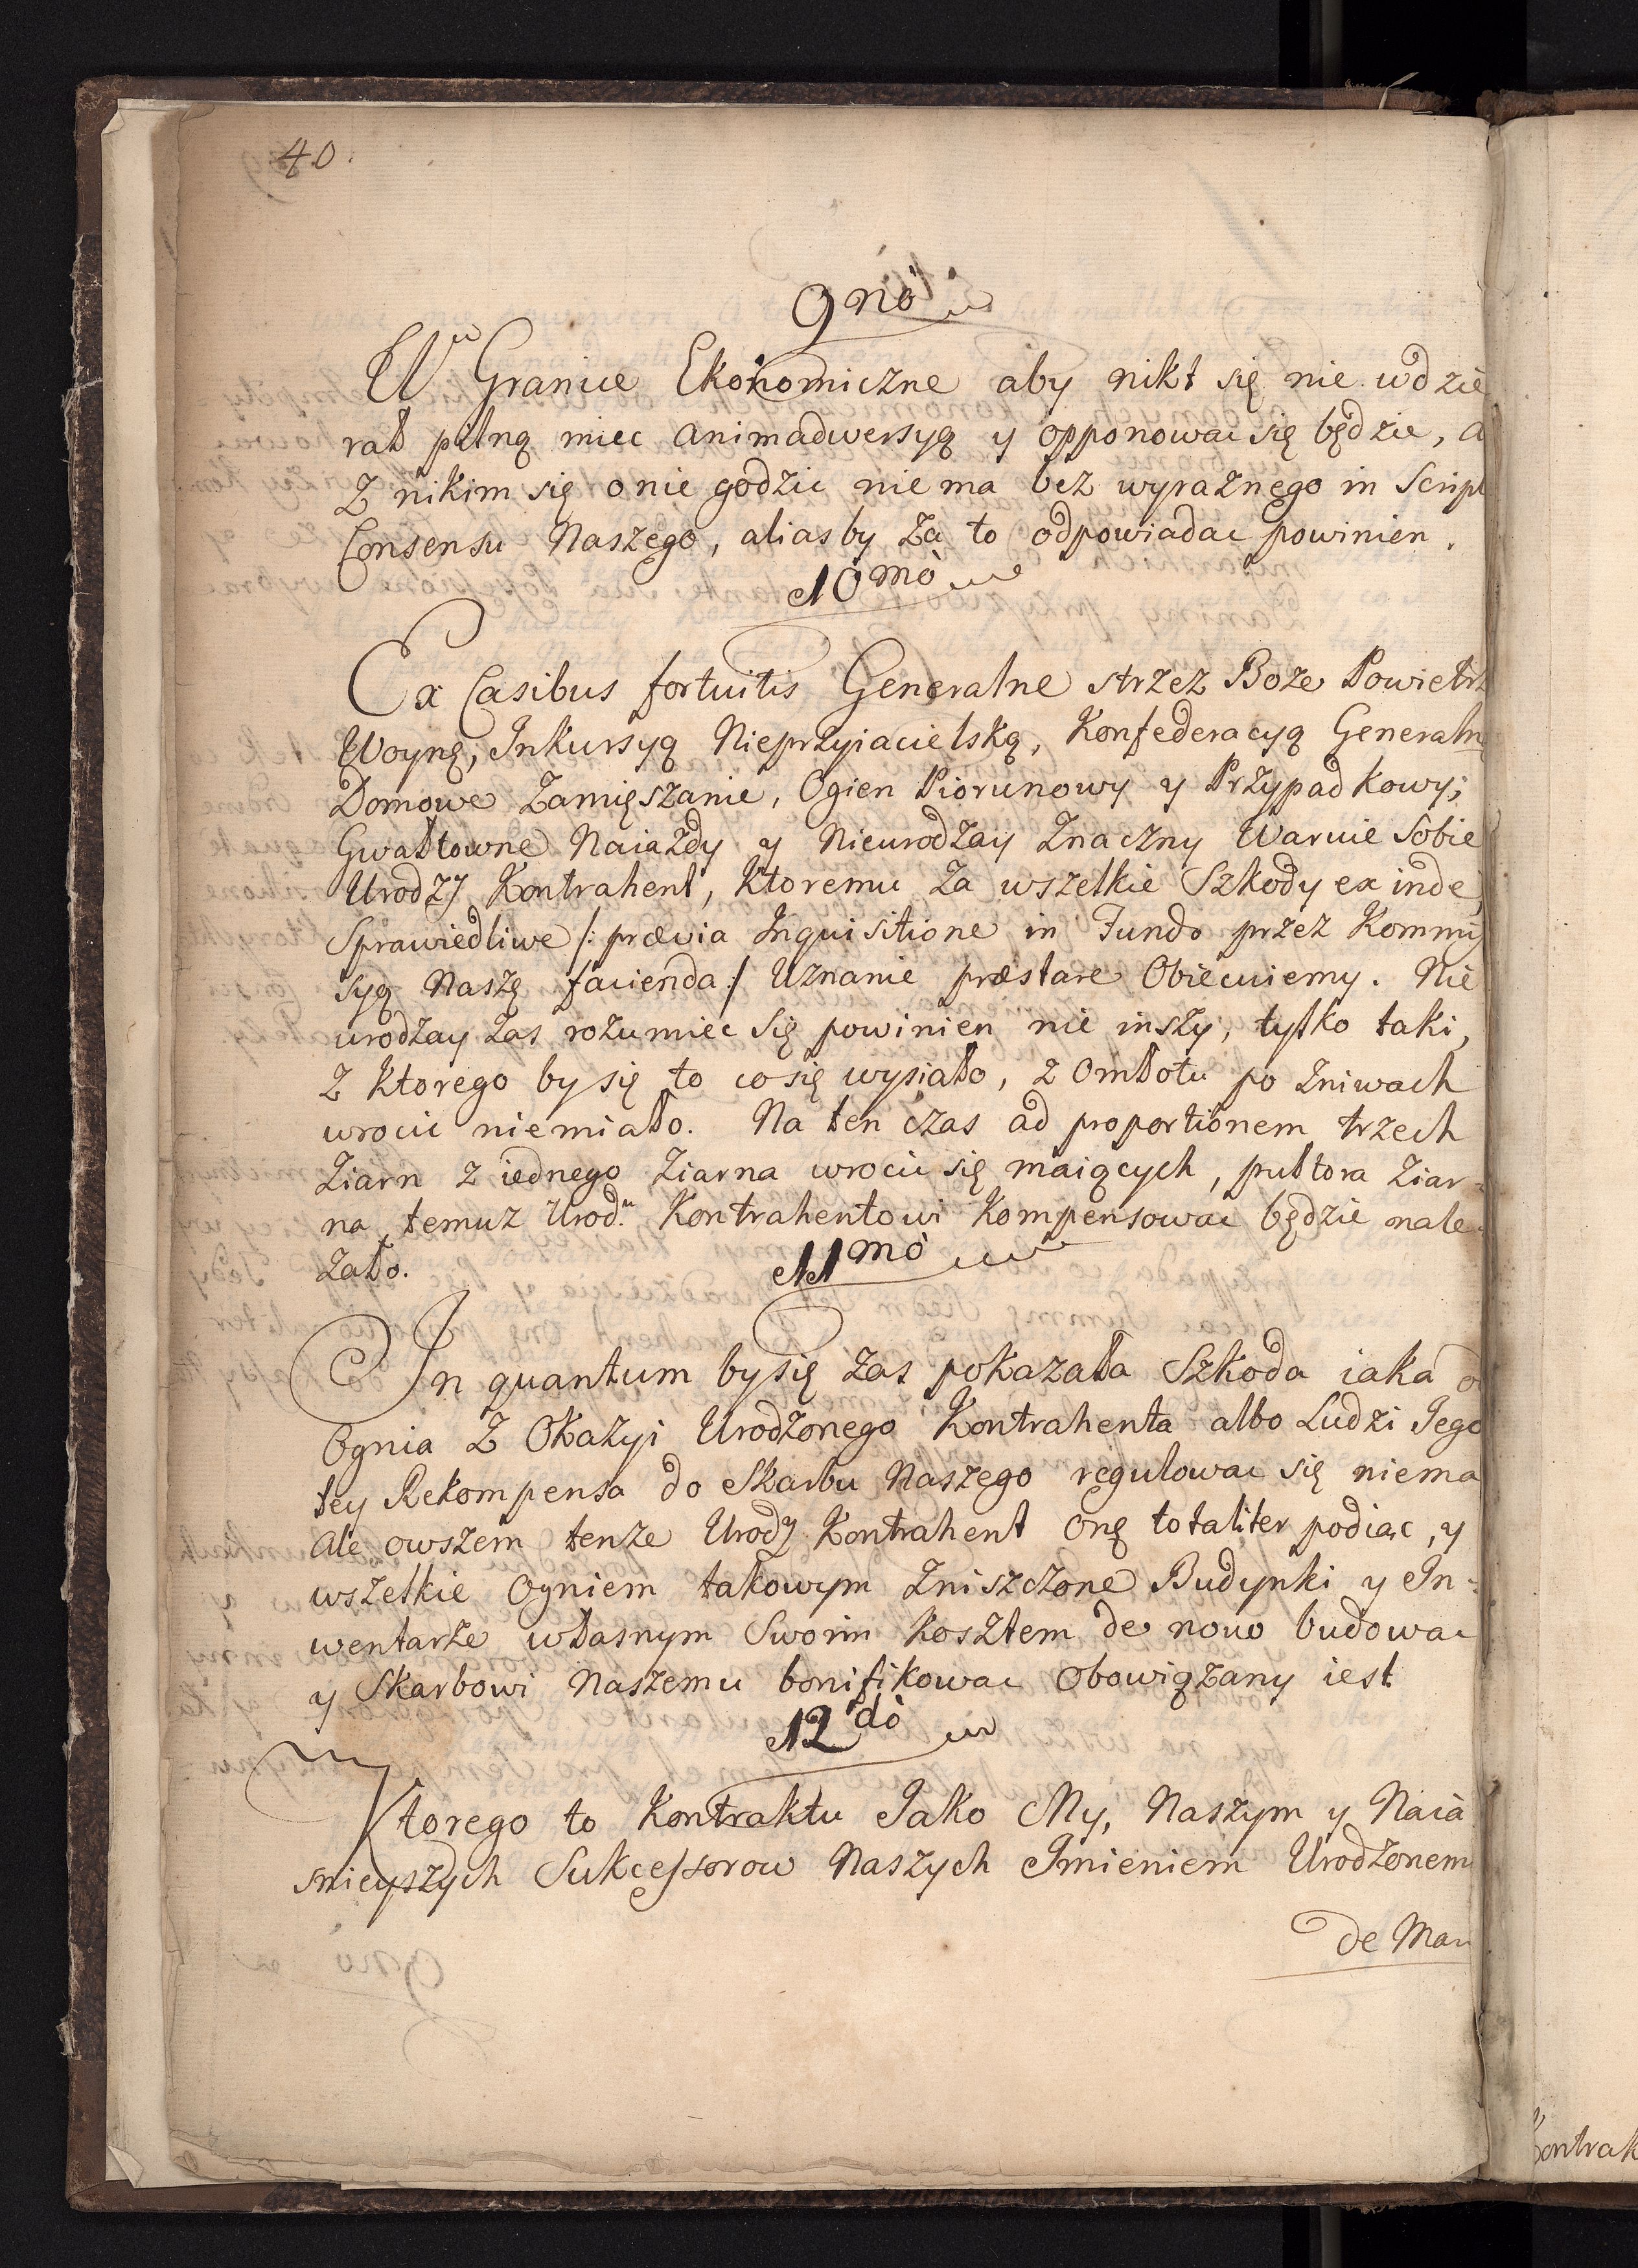 40.
9nò
W Granice Ekonomiczne aby nikt się nie wdzie
rał pilną miec animadwersyą y opponowac się będzie, a
Z nikim się o nie godzic nie ma bez wyraznego in Script
Consensu Naszego, alias by za to odpowiadac powinien.
10mò
Ex Casibus fortuitis Generalne strzez Boze Powietrz
Woynę, Inkursyą Nieprzyiacielską, Konfederacyą Generalną
Domowe Zamięszanie, Ogien Piorunowy y Przypadkowy;
Gwałtowne Naiazdy y Nieurodzay Znaczny Waruie Sobie
Urodzy Kontrahent, Ktoremu za wszelkie Szkody ex inde,
Sprawiedliwe /: prævia Inquisitione in Fundo przez Kommi
syą Naszę facienda :/ Uznanie præstare Obiecuiemy. Nie
urodzay zas rozumiec Się powinien nie inszy, tylko taki,
z Ktorego by się to co się wysiało, z Omłotu po Zniwach
wrocic niemiało. Na ten czas ad proportionem trzech
Ziarn z iednego Ziarna wrocic się maiących, pułtora Ziar-
na temuz Urod.u Kontrahentowi Kompensowac będzie nale-
zało.
11mò
In quantum by się zas pokazała Szkoda iaka o
Ognia Z Okazyi Urodzonego Kontrahenta albo Ludzi Jego
tey Rekompensa do Skarbu Naszego regulowac się niema
Ale owszem tenze Urody Kontrahent onę totaliter podiąc, y
wszelkie Ogniem takowym Zniszczone Budynki y In-
wentarze własnym Swoim Kosztem de novo budowac
y Skarbowi Naszemu bonifikowac Obowiązany iest
12dò
Ktorego to Kontraktu Jako My, Naszym y Naia
snieyszych Sukcessorow Naszych Imieniem Urodzonem
de Man
9nò
Kontrak